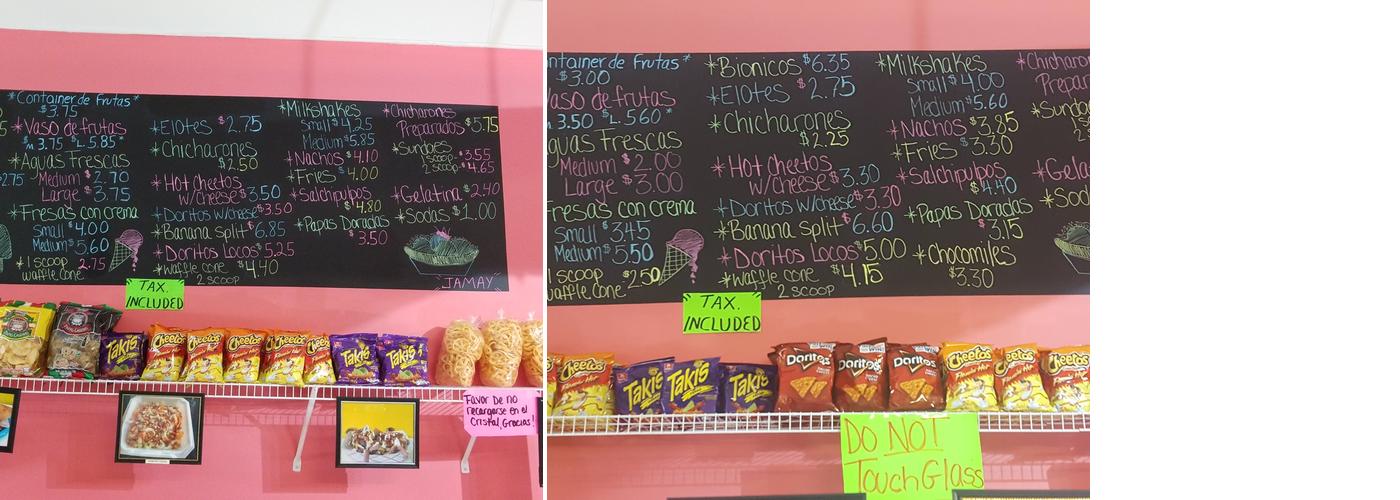 *Container de Frutas*
$3.75
*Vaso de frutas
M 3.75 $L.5.85*
*Aguas Frescas
$2.75 Medium $2.70
Large $3.75
*Fresas con crema
Small $4.00
Medium $5.60
*1 scoop 2.75
waffle cone
*Elotes $2.75
*Chicharones
$2.50
*Hot Cheetos
w/cheese $3.50
*Doritos w/cheese $3.50
*Banana Split $6.85
*Doritos Locos $5.25
*Waffle cone $4.40
2 scoop
*Milkshakes
Small $4.25
Medium $5.85
*Nachos $4.10
*Fries $4.00
*Salchipulpos
$4.80
*Papas Doradas
$3.50
*Chicharones
Preparados $5.75
*Sundaes
1 scoop- $3.55
2 scoop- $4.65
*Gelatina $2.40
*Sodas $1.00
"JAMAY"
TAX.
INCLUDED
Takis
Cheetos
Cheetos
Cheetos
Cheetos
Cheetos
Takis
Takis
Favor De no
recargarse en el
Cristal, Gracias!
ntainer de Frutas*
$3.00
Vaso de frutas
M 3.50 $L.560*
guas Frescas
Medium $2.00
Large $3.00
Fresas con crema
Small $3.45
Medium $5.50
1 scoop $2.50
waffle cone
*Bionicos $6.35
*Elotes $2.75
*Chicharones
$2.25
*Hot Cheetos
w/Cheese $3.30
*Doritos w/cheese $3.30
*Banana Split $6.60
*Doritos Locos $5.00
*Waffle cone $4.15
2 scoop
*Milkshakes
Small $4.00
Medium $5.60
*Nachos $3.85
*Fries $3.30
*Salchipulpos
$4.40
*Papas Doradas
$3.15
*Chocomiles
$3.30
*Chicharon
Prepara
*Sundae
*Gela
*Sod
TAX.
INCLUDED
Cheetos
Takis
Takis
Takis
Doritos
Doritos
Doritos
Cheetos
Cheetos
Cheetos
DO NOT
Touch Glass